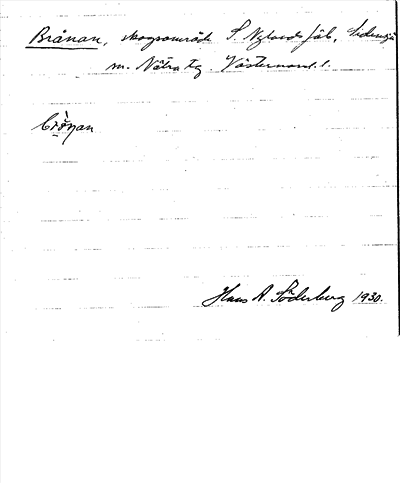 Brånan, skogsområde S. Nylands fäb., Sidensjö
sn. Nätra tg. Västernorrl. l.
Hans A. Söderberg 1930.